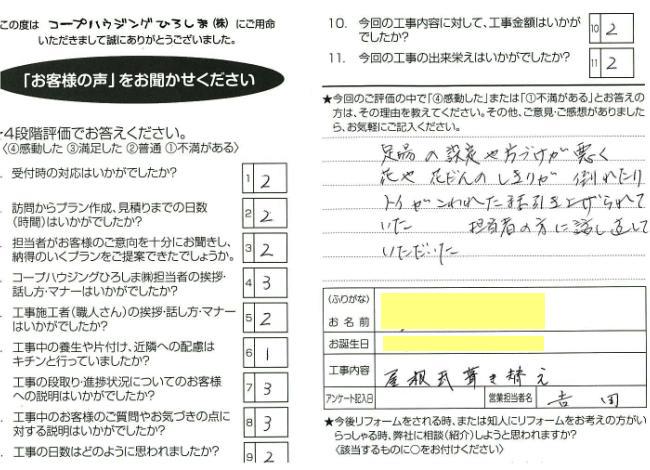 この度は コープハウジングひろしま(株) にご用命
いただきまして誠にありがとうございました。
「お客様の声」をお聞かせください
4段階評価でお答えください。
〈④感動した ③満足した ②普通 ①不満がある〉
受付時の対応はいかがでしたか?
1 2
訪問からプラン作成、見積りまでの日数
(時間)はいかがでしたか?
2 2
担当者がお客様のご意向を十分にお聞きし、
納得のいくプランをご提案できたでしょうか。
3 2
コープハウジングひろしま㈱担当者の挨拶・
話し方・マナーはいかがでしたか?
4 3
工事施工者(職人さん)の挨拶・話し方・マナー
はいかがでしたか?
5 2
工事中の養生や片付け、近隣への配慮は
キチンと行っていましたか?
6 1
工事の段取り・進捗状況についてのお客様
への説明はいかがでしたか?
7 3
工事中のお客様のご質問やお気づきの点に
対する説明はいかがでしたか?
8 3
工事の日数はどのように思われましたか?
9 2
10. 今回の工事内容に対して、工事金額はいかが
でしたか?
10 2
11. 今回の工事の出来栄えはいかがでしたか?
11 2
★今回のご評価の中で「④感動した」または「①不満がある」とお答えの
方は、その理由を教えてください。その他、ご意見・ご感想がありました
ら、お気軽にご記入ください。
足場の設定や片づけが悪く
花や花だんのしきりが倒れたり
トイがこわれたまま引き上げられて
いた 担当者の方に話し直して
いただいた
(ふりがな)
お名前
お誕生日
工事内容 屋根瓦葺き替え
アンケート記入日 営業担当者名 吉田
★今後リフォームをされる時、または知人にリフォームをお考えの方がい
らっしゃる時、弊社に相談(紹介)しようと思われますか?
〈該当するものに○をお付けください〉